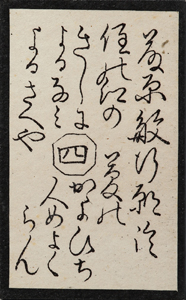 藤原敏行朝臣
住の江の
きしに
よるなみ
よるさへや
夢の
かよひち
人めよく
らん
四